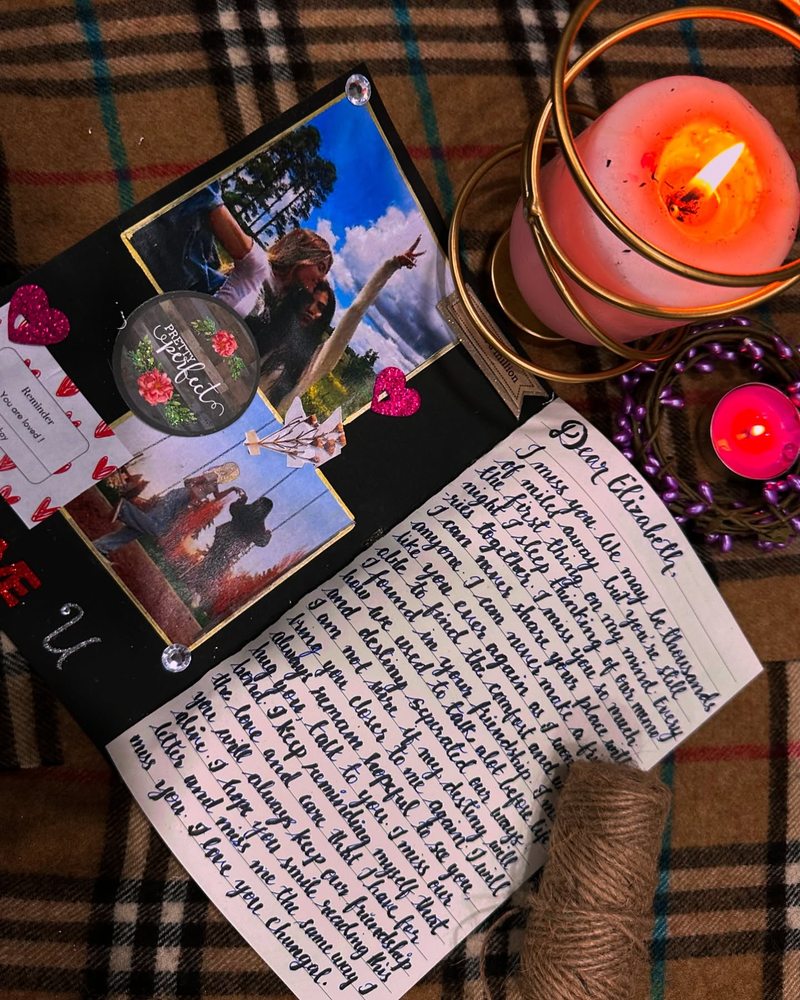 PRETTY
perfect
Reminder
You are loved !
U
million
Dear Elizabeth,
I miss you. We may be thousands
of miles away but you're still
the first thing on my mind. Every
night I sleep thinking of our memo-
ries together. I miss you so much
I can never share your place with
anyone. I can never make a
like you ever again as I
able to find the comfort
I found in your friendship. I
how we used to talk alot before life
and destiny separated our ways.
I am not sure if my destiny will
bring you closer to me again. I will
always remain hopeful to see you
hug you, talk to you. I miss our
bond. I keep reminding myself that
the love and care that I have for
you will always keep our friendship
alive. I hope you smile reading this
letter and miss me the same way I
miss you. I love you Chungal.